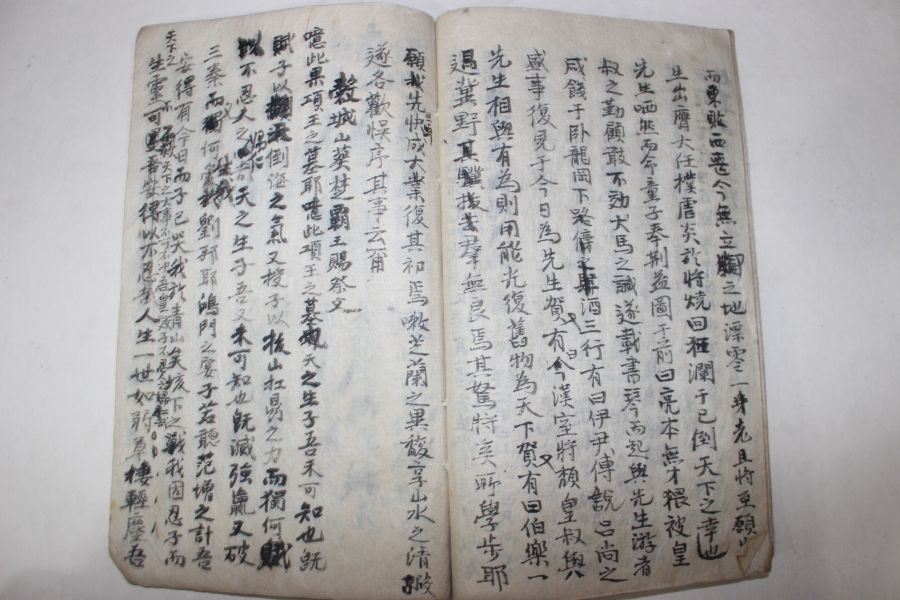 而東敗西喪今無立胸之地漂零一身老且將至願以
生出膺大任撲虐炎於將燒回狂瀾于已倒天下之幸也
先生哂然而命童子奉荆益圖于前曰亮本無才猥被皇
叔之勤顧敢不効犬馬之誠遂載書琴而起與先生游者
咸餞于臥龍岡下路傍酒三行有曰伊尹傅說呂尚之
盛事復見于今日為先生賀有曰今漢室將頹皇叔與
先生相與有為則用能光復舊物為天下賀有曰伯樂一
過冀野其驥拔羣無良焉其駑將奚所學步耶
願我先生快成大業復其初焉嗽芝蘭之異馥享山水之清
遂各歡悞序其事云爾
穀城山葬楚霸王賜祭文
噫此果項王之墓耶噫此項王之墓天之生子吾未可知也旣
賦子以倒海之氣又授子以拔山扛鼎之力而獨何賦
以不忍人之天之生子吾又未可知也旣滅強嬴又破
三秦而獨何劉耶鴻門之宴子若聽范增之計吾
安得有今日而子已哭我於靑山矣垓下之戰我因忍子而
天下之
生靈可
安得以不忍人生一世如弱草棲輕塵吾